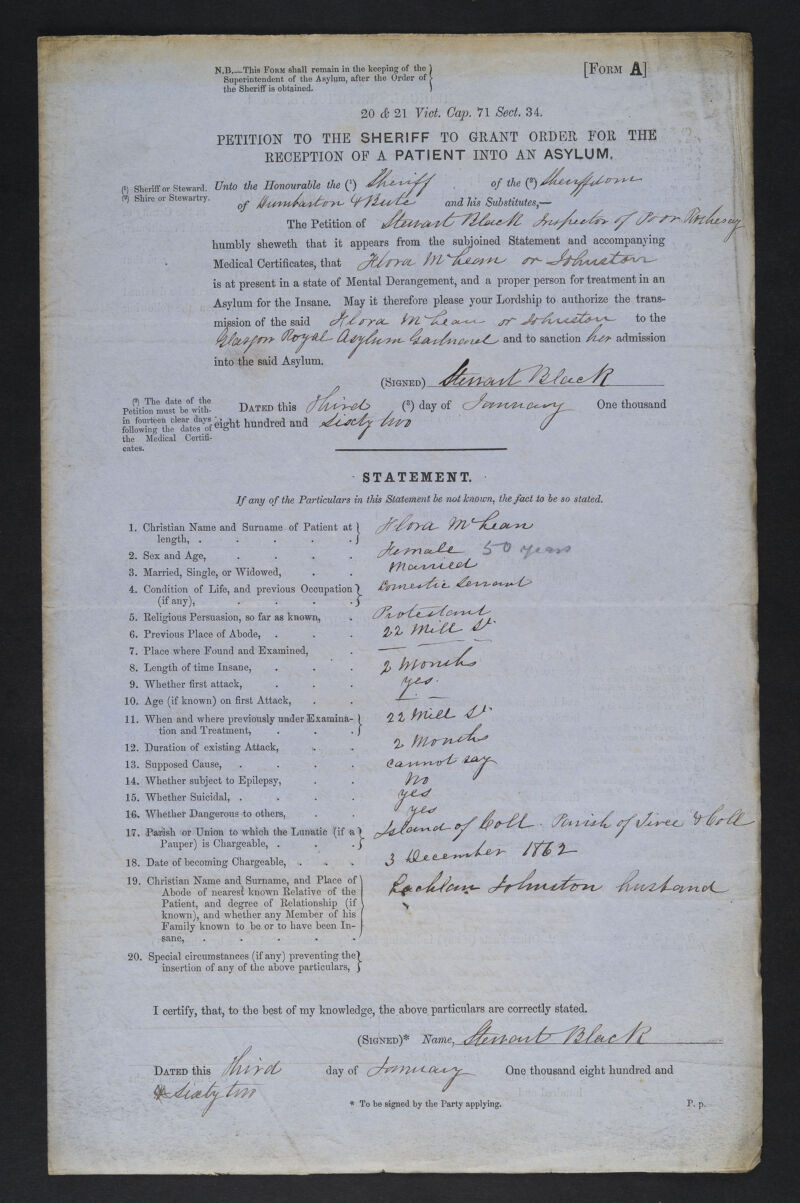 N.B.—This Form shall remain in the keeping of the
Superintendent of the Asylum, after the Order of
the Sheriff is obtained.
[Form A]
20 & 21 Vict. Cap. 71 Sect. 34.
PETITION TO THE SHERIFF TO GRANT ORDER FOR THE
RECEPTION OF A PATIENT INTO AN ASYLUM.
(¹) Sheriff or Steward.
(²) Shire or Stewartry.
Unto the Honourable the (¹) Sheriff of the (²) Sheriffdom
of Dumbarton & Bute and his Substitutes,—
The Petition of Stewart Black Inspector of Poor Rothesay
humbly sheweth that it appears from the subjoined Statement and accompanying
Medical Certificates, that Flora McLean or Johnston
is at present in a state of Mental Derangement, and a proper person for treatment in an
Asylum for the Insane. May it therefore please your Lordship to authorize the trans-
mission of the said Flora McLean or Johnston to the
Glasgow Royal Asylum Gartnavel and to sanction her admission
into the said Asylum.
(Signed) Stewart Black
(³) The date of the
Petition must be with-
in fourteen clear days
following the dates of
the Medical Certifi-
cates.
Dated this Third (³) day of January One thousand
eight hundred and Sixty two
STATEMENT.
If any of the Particulars in this Statement be not known, the fact to be so stated.
1. Christian Name and Surname of Patient at
length, . . . . . Flora McLean
2. Sex and Age, . . . . Female 50 years
3. Married, Single, or Widowed, . . Married
4. Condition of Life, and previous Occupation
(if any), . . . . . Domestic Servant
5. Religious Persuasion, so far as known, . Protestant
6. Previous Place of Abode, . . . 22 Mill St.
7. Place where Found and Examined, . — —
8. Length of time Insane, . . . 2 Months
9. Whether first attack, . . . yes.
10. Age (if known) on first Attack, . . — —
11. When and where previously under Examina-
tion and Treatment, . . . 22 Mill St.
12. Duration of existing Attack, . . 2 Months
13. Supposed Cause, . . . . cannot say
14. Whether subject to Epilepsy, . . No
15. Whether Suicidal, . . . . yes
16. Whether Dangerous to others, . . yes
17. Parish or Union to which the Lunatic (if a
Pauper) is Chargeable, . . . Island of Coll. Parish of Tiree & Coll
18. Date of becoming Chargeable, . . . 3 December 1862
19. Christian Name and Surname, and Place of
Abode of nearest known Relative of the
Patient, and degree of Relationship (if
known), and whether any Member of his
Family known to be or to have been In-
sane, . . . . . Lachlan Johnston husband
20. Special circumstances (if any) preventing the
insertion of any of the above particulars,
I certify, that, to the best of my knowledge, the above particulars are correctly stated.
(Signed)* Name, Stewart Black
Dated this Third day of January One thousand eight hundred and
& Sixty two
* To be signed by the Party applying.
P. p.